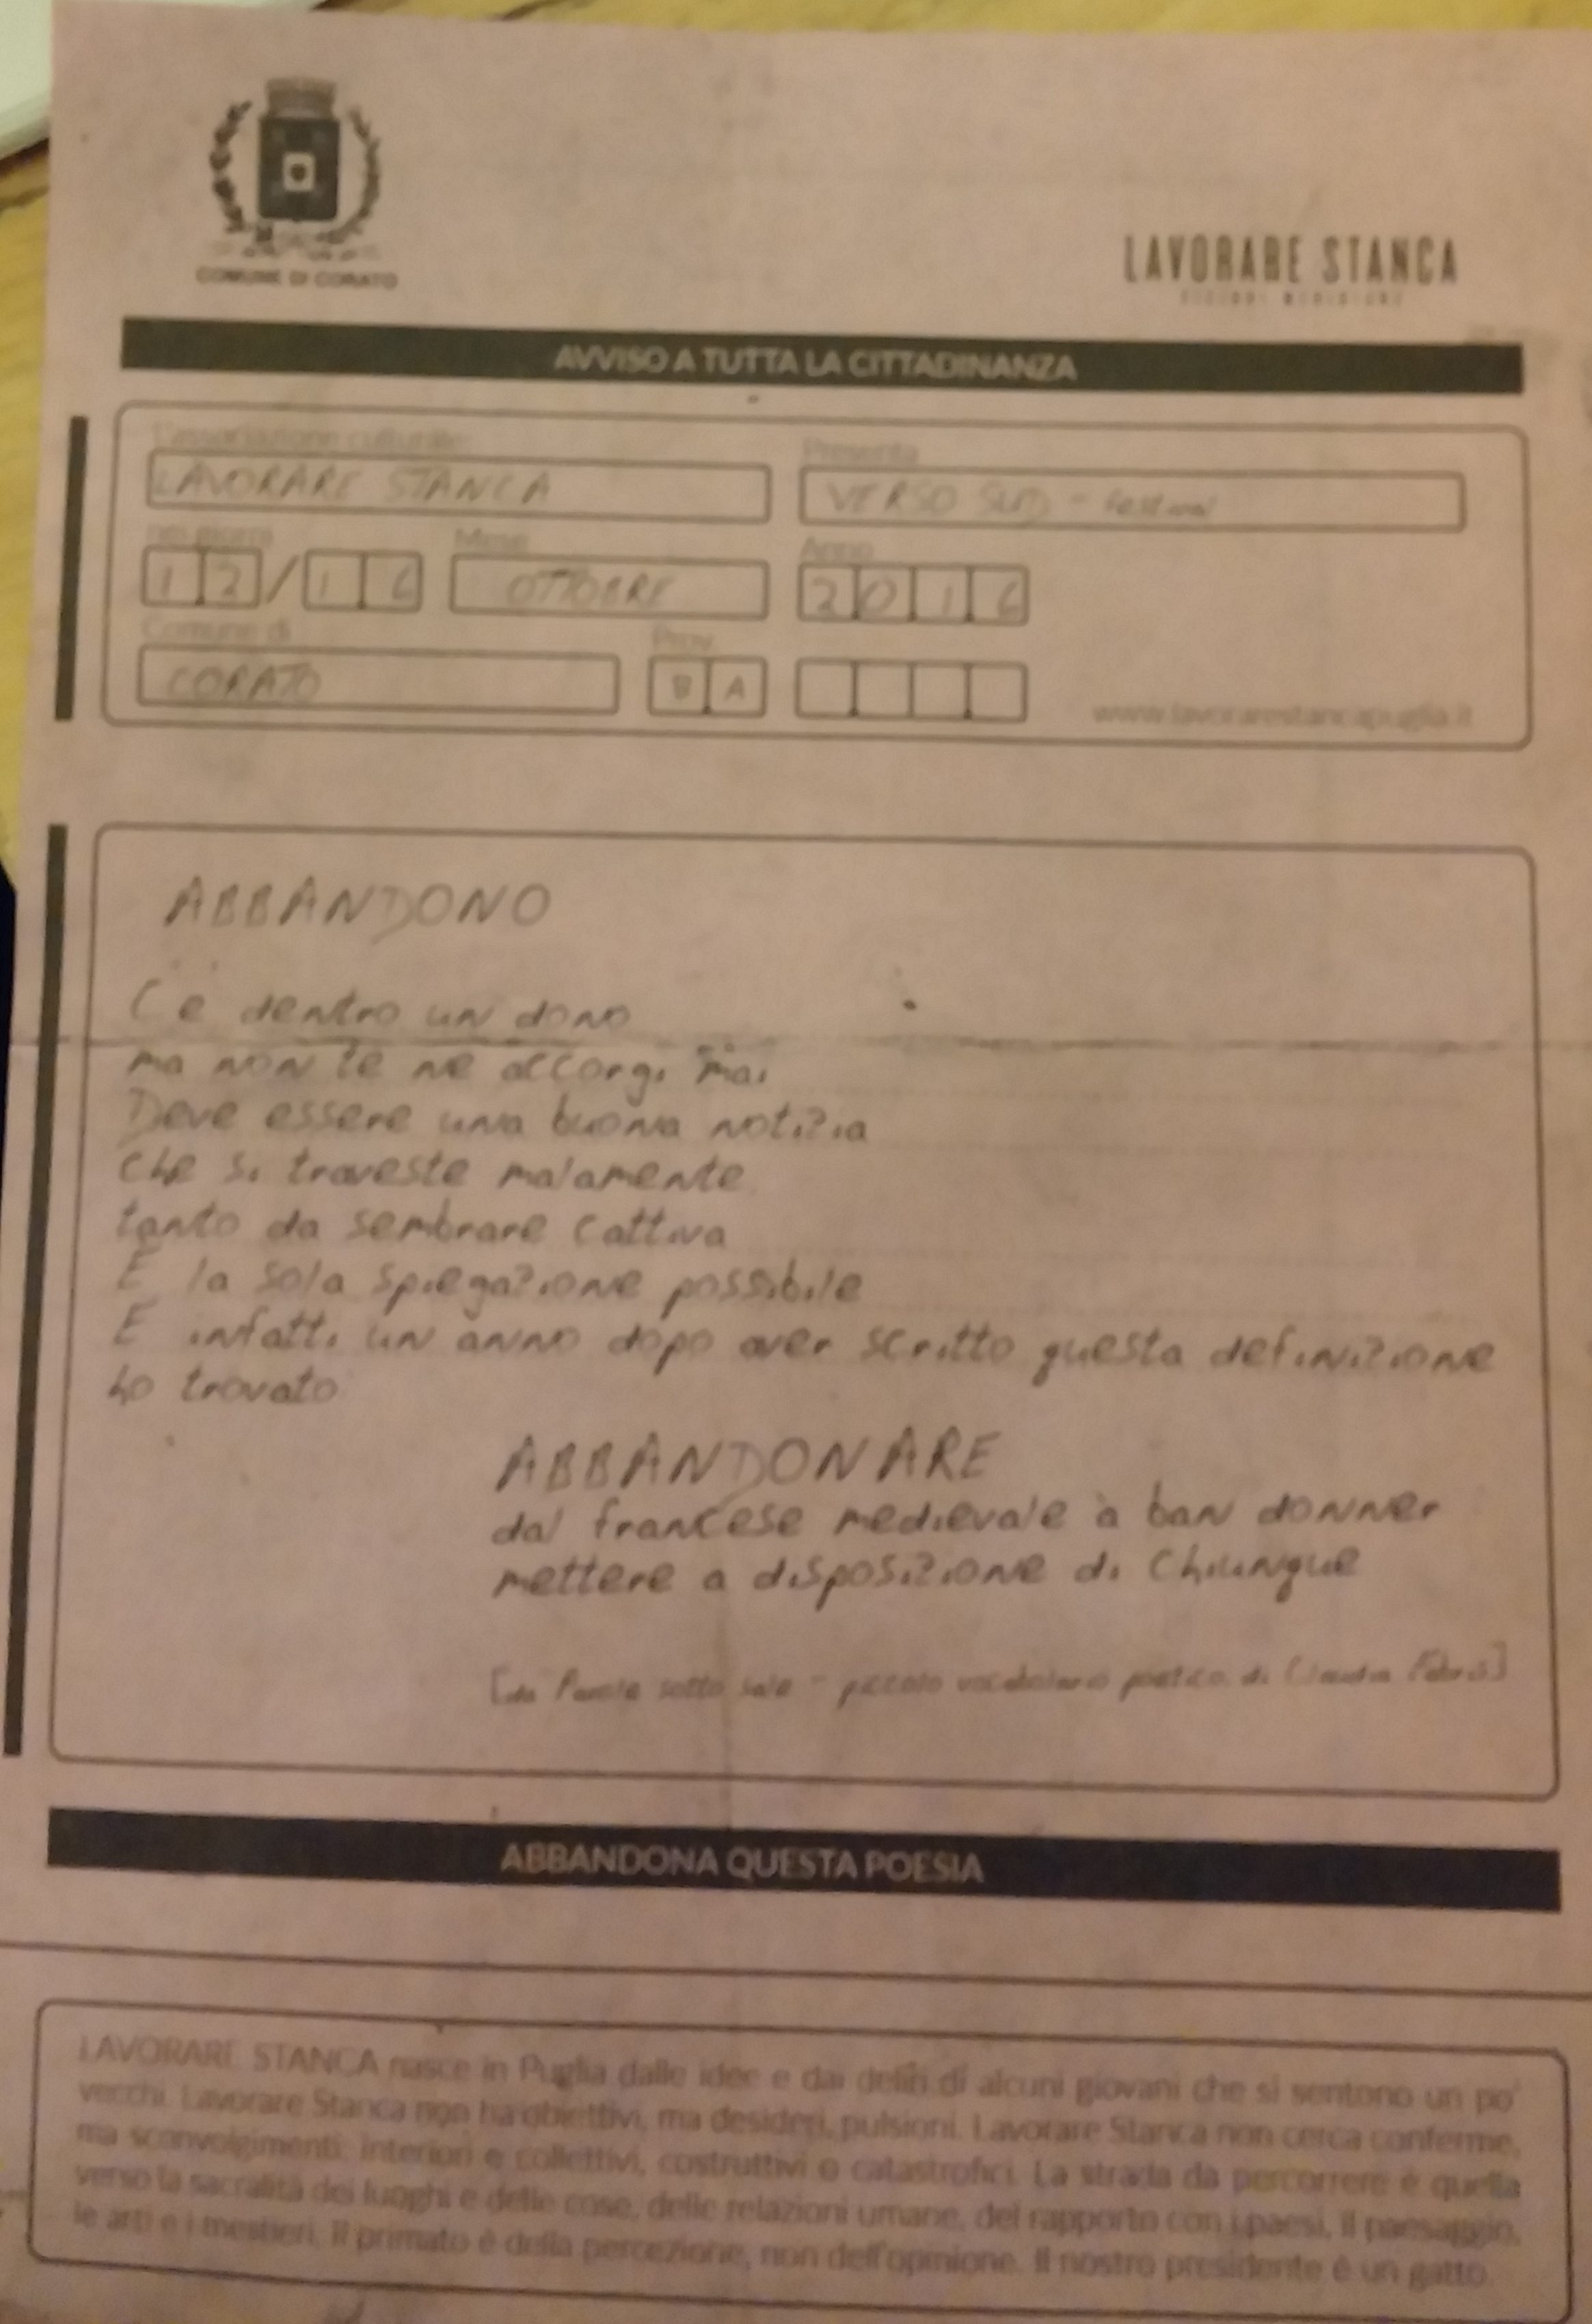 COMUNE DI CORATO
LAVORARE STANCA
AVVISO A TUTTA LA CITTADINANZA
L'associazione culturale
Presenta
LAVORARE STANCA
VERSO SUD - festival
nei giorni
Mese
Anno
12/16
OTTOBRE
2016
Comune di
Prov.
CORATO
BA
www.lavorarestancapuglia.it
ABBANDONO
C'e dentro un dono
ma non te ne accorgi mai
Deve essere una buona notizia
che si traveste malamente
tanto da sembrare cattiva
E la sola spiegazione possibile
E infatti un anno dopo aver scritto questa definizione
ho trovato
ABBANDONARE
dal francese medievale à ban donner
mettere a disposizione di chiunque
[da Parole sotto sale - piccolo vocabolario poetico di Claudia Fabris]
ABBANDONA QUESTA POESIA
LAVORARE STANCA nasce in Puglia dalle idee e dai deliri di alcuni giovani che si sentono un po'
vecchi. Lavorare Stanca non ha obiettivi, ma desideri, pulsioni. Lavorare Stanca non cerca conferme,
ma sconvolgimenti: interiori e collettivi, costruttivi o catastrofici. La strada da percorrere è quella
verso la sacralità dei luoghi e delle cose, delle relazioni umane, del rapporto con i paesi, il paesaggio,
le arti e i mestieri. Il primato è della percezione, non dell'opinione. Il nostro presidente è un gatto.